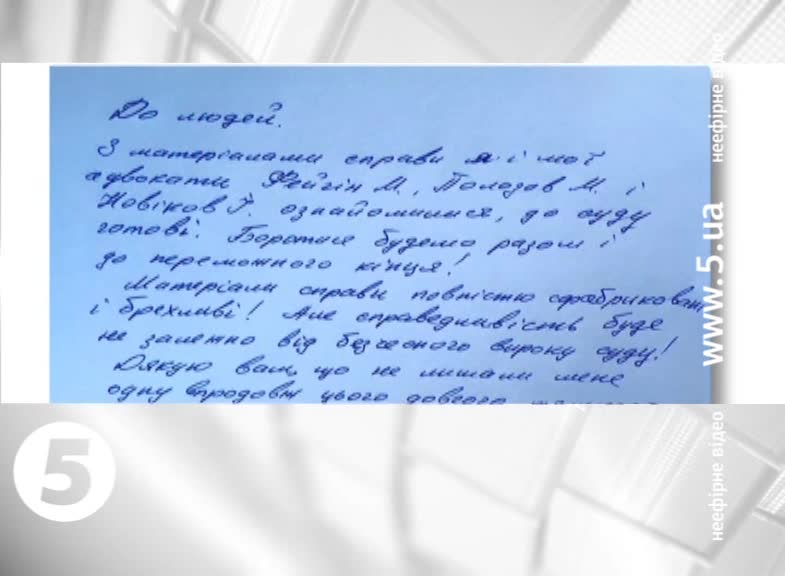 До людей.
З матеріалами справи я і мої
адвокати, Фейгін М., Полозов М. і
Новіков І. ознайомилися, до суду
готові. Боротися будемо разом і
до переможного кінця!
Матеріали справи повністю сфабриковані
і брехливі! Але справедливість буде
не залежно від безчесного вироку суду!
Дякую вам, що не лишали мене
одну впродовж цього довгого
неефірне відео
www.5.ua
неефірне відео
5